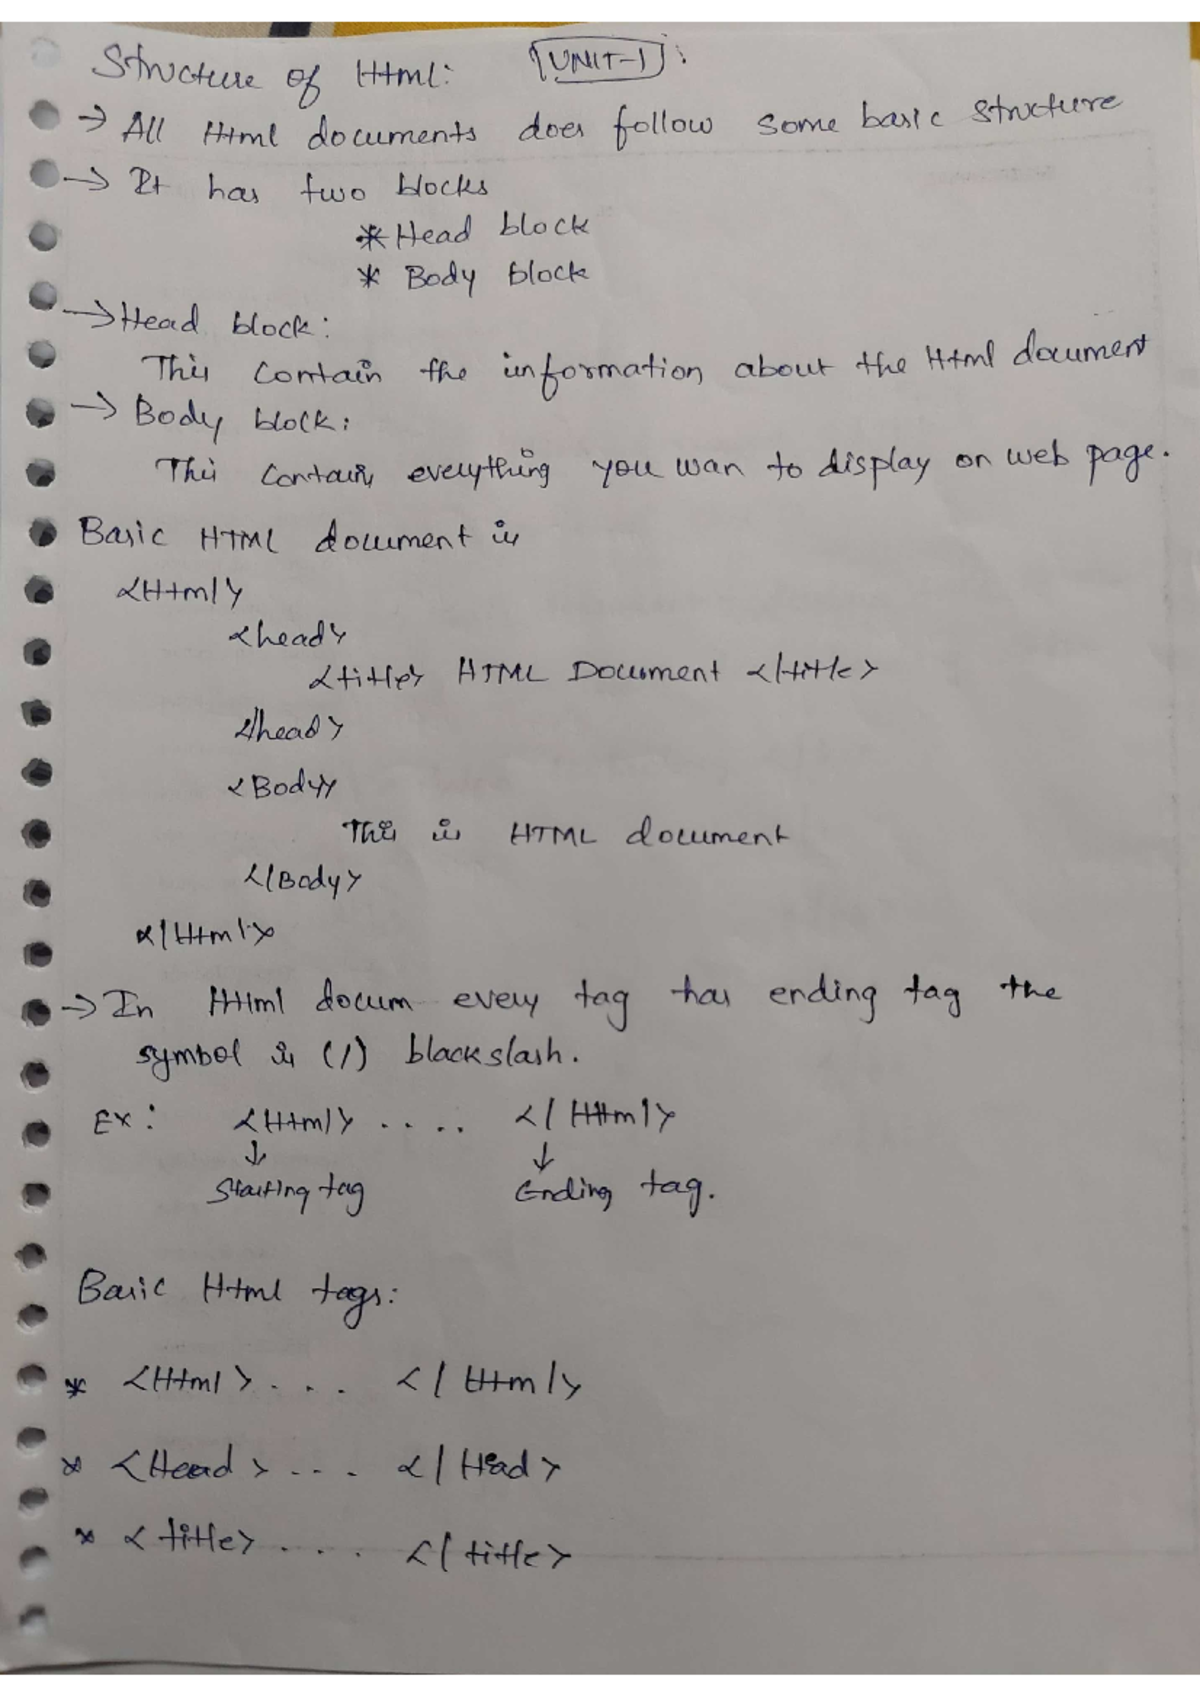 Structure of Html: UNIT-1:
→ All Html documents does follow some basic structure
→ It has two blocks
* Head block
* Body block
→ Head block:
This contain the information about the Html document
→ Body block:
This contains everything you wan to display on web page.
Basic HTML document is
<Html>
<head>
<title> HTML Document </title>
</head>
<Body>
This is HTML document
</Body>
</Html>
→ In Html docum every tag has ending tag the
symbol is (/) blackslash.
Ex: <Html> .... </Html>
↓ ↓
Starting tag Ending tag.
Basic Html tags:
* <Html> ... </Html>
* <Head> ... </Head>
* <title> ... </title>